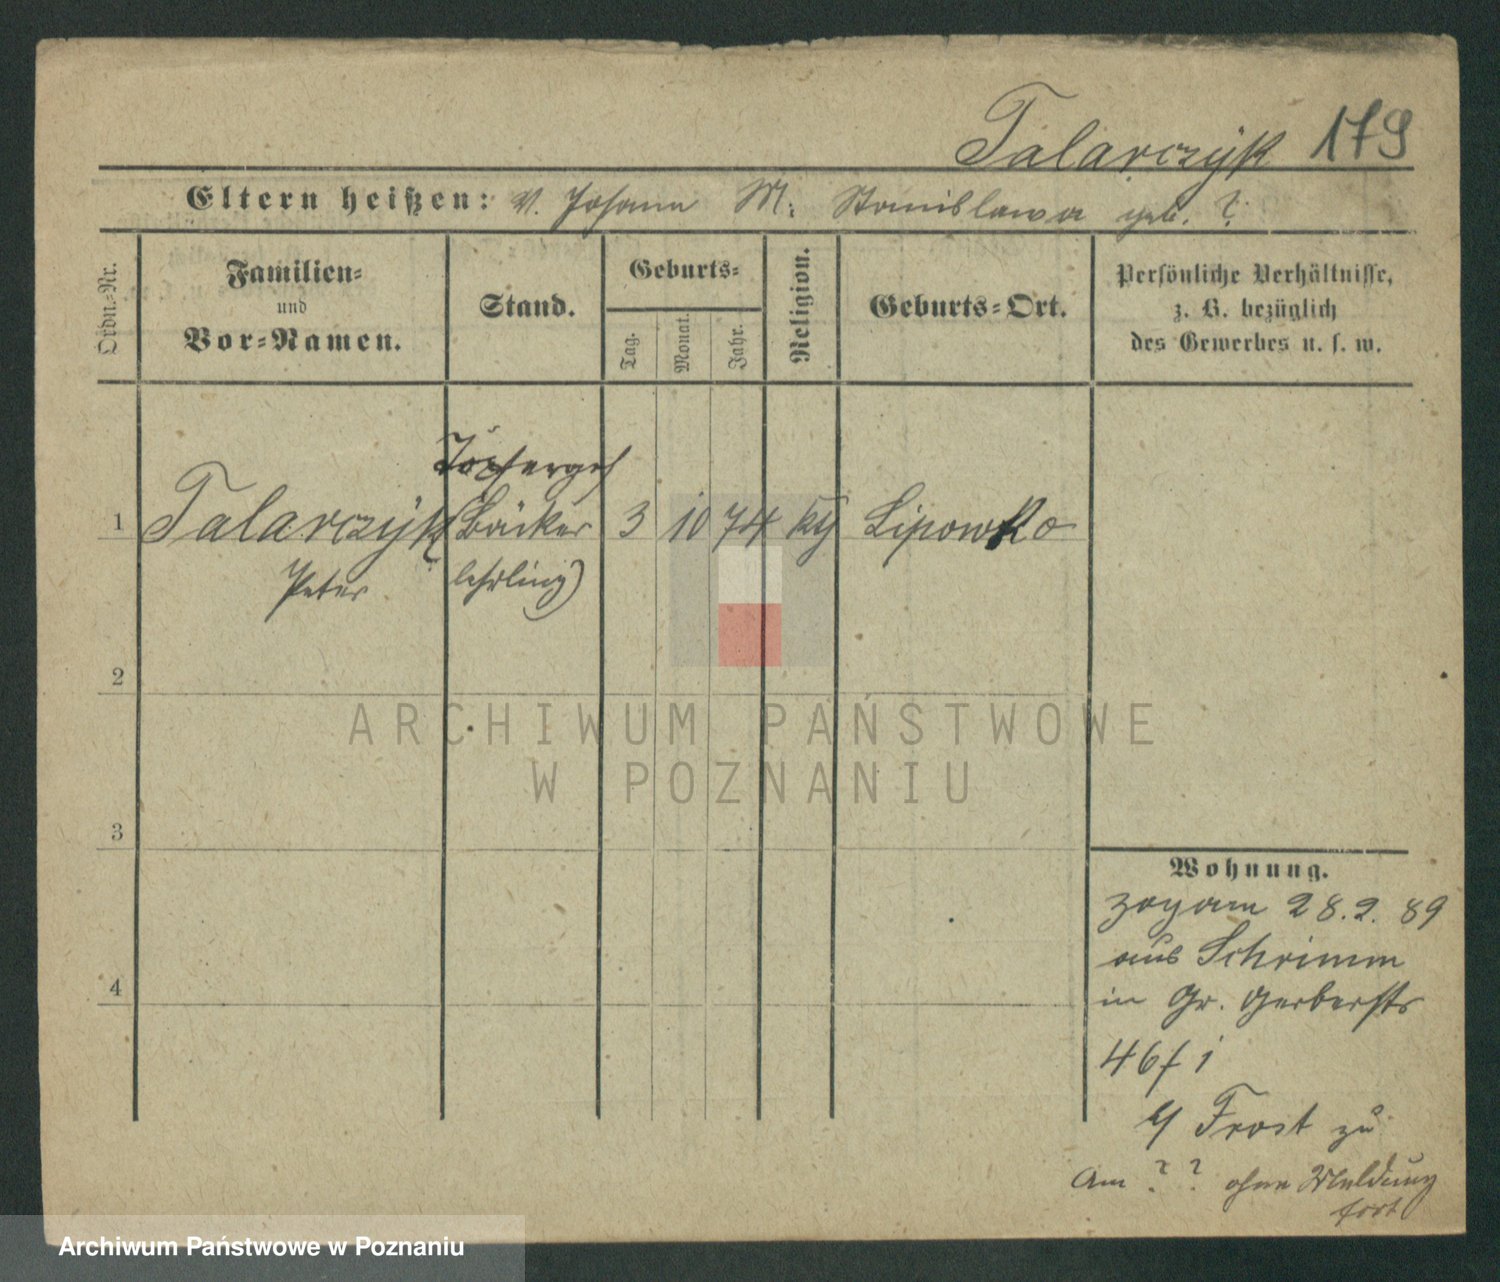 Talarczyk 179
Eltern heißen: V. Johann M. Stanislawa geb. ?
Ordn.-Nr.
Familien-
und
Vor-Namen.
Stand.
Geburts-
Tag.
Monat.
Jahr.
Religion.
Geburts-Ort.
Persönliche Verhältnisse,
z. B. bezüglich
des Gewerbes u. s. w.
Töpferges
1 Talarczyk (Bäcker 3 10 74 kth Lipowko
Peter lehrling)
2
3
4
Wohnung.
zogam 28.2.89
aus Schrimm
in Gr. Gerberstr
46 f 1
Frost zu
Am ? ? ohne Meldung
fort
ARCHIWUM PAŃSTWOWE
W POZNANIU
Archiwum Państwowe w Poznaniu